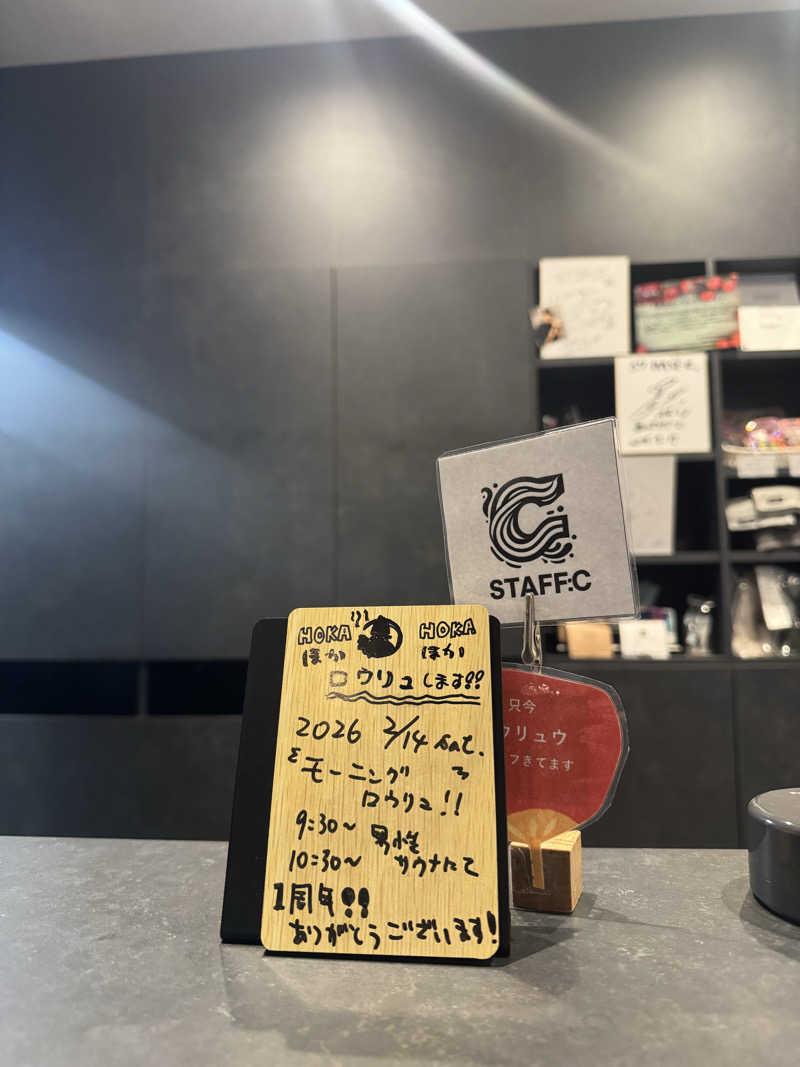 HOKA HOKA
ほか ほか
ロウリュします!!
2026 2/14 sat.
モーニング
ロウリュ!!
9:30~ 男性
10:30~ サウナにて
1周年!!
ありがとうございます!
STAFF:C
只今
ウリュウ
フきてます